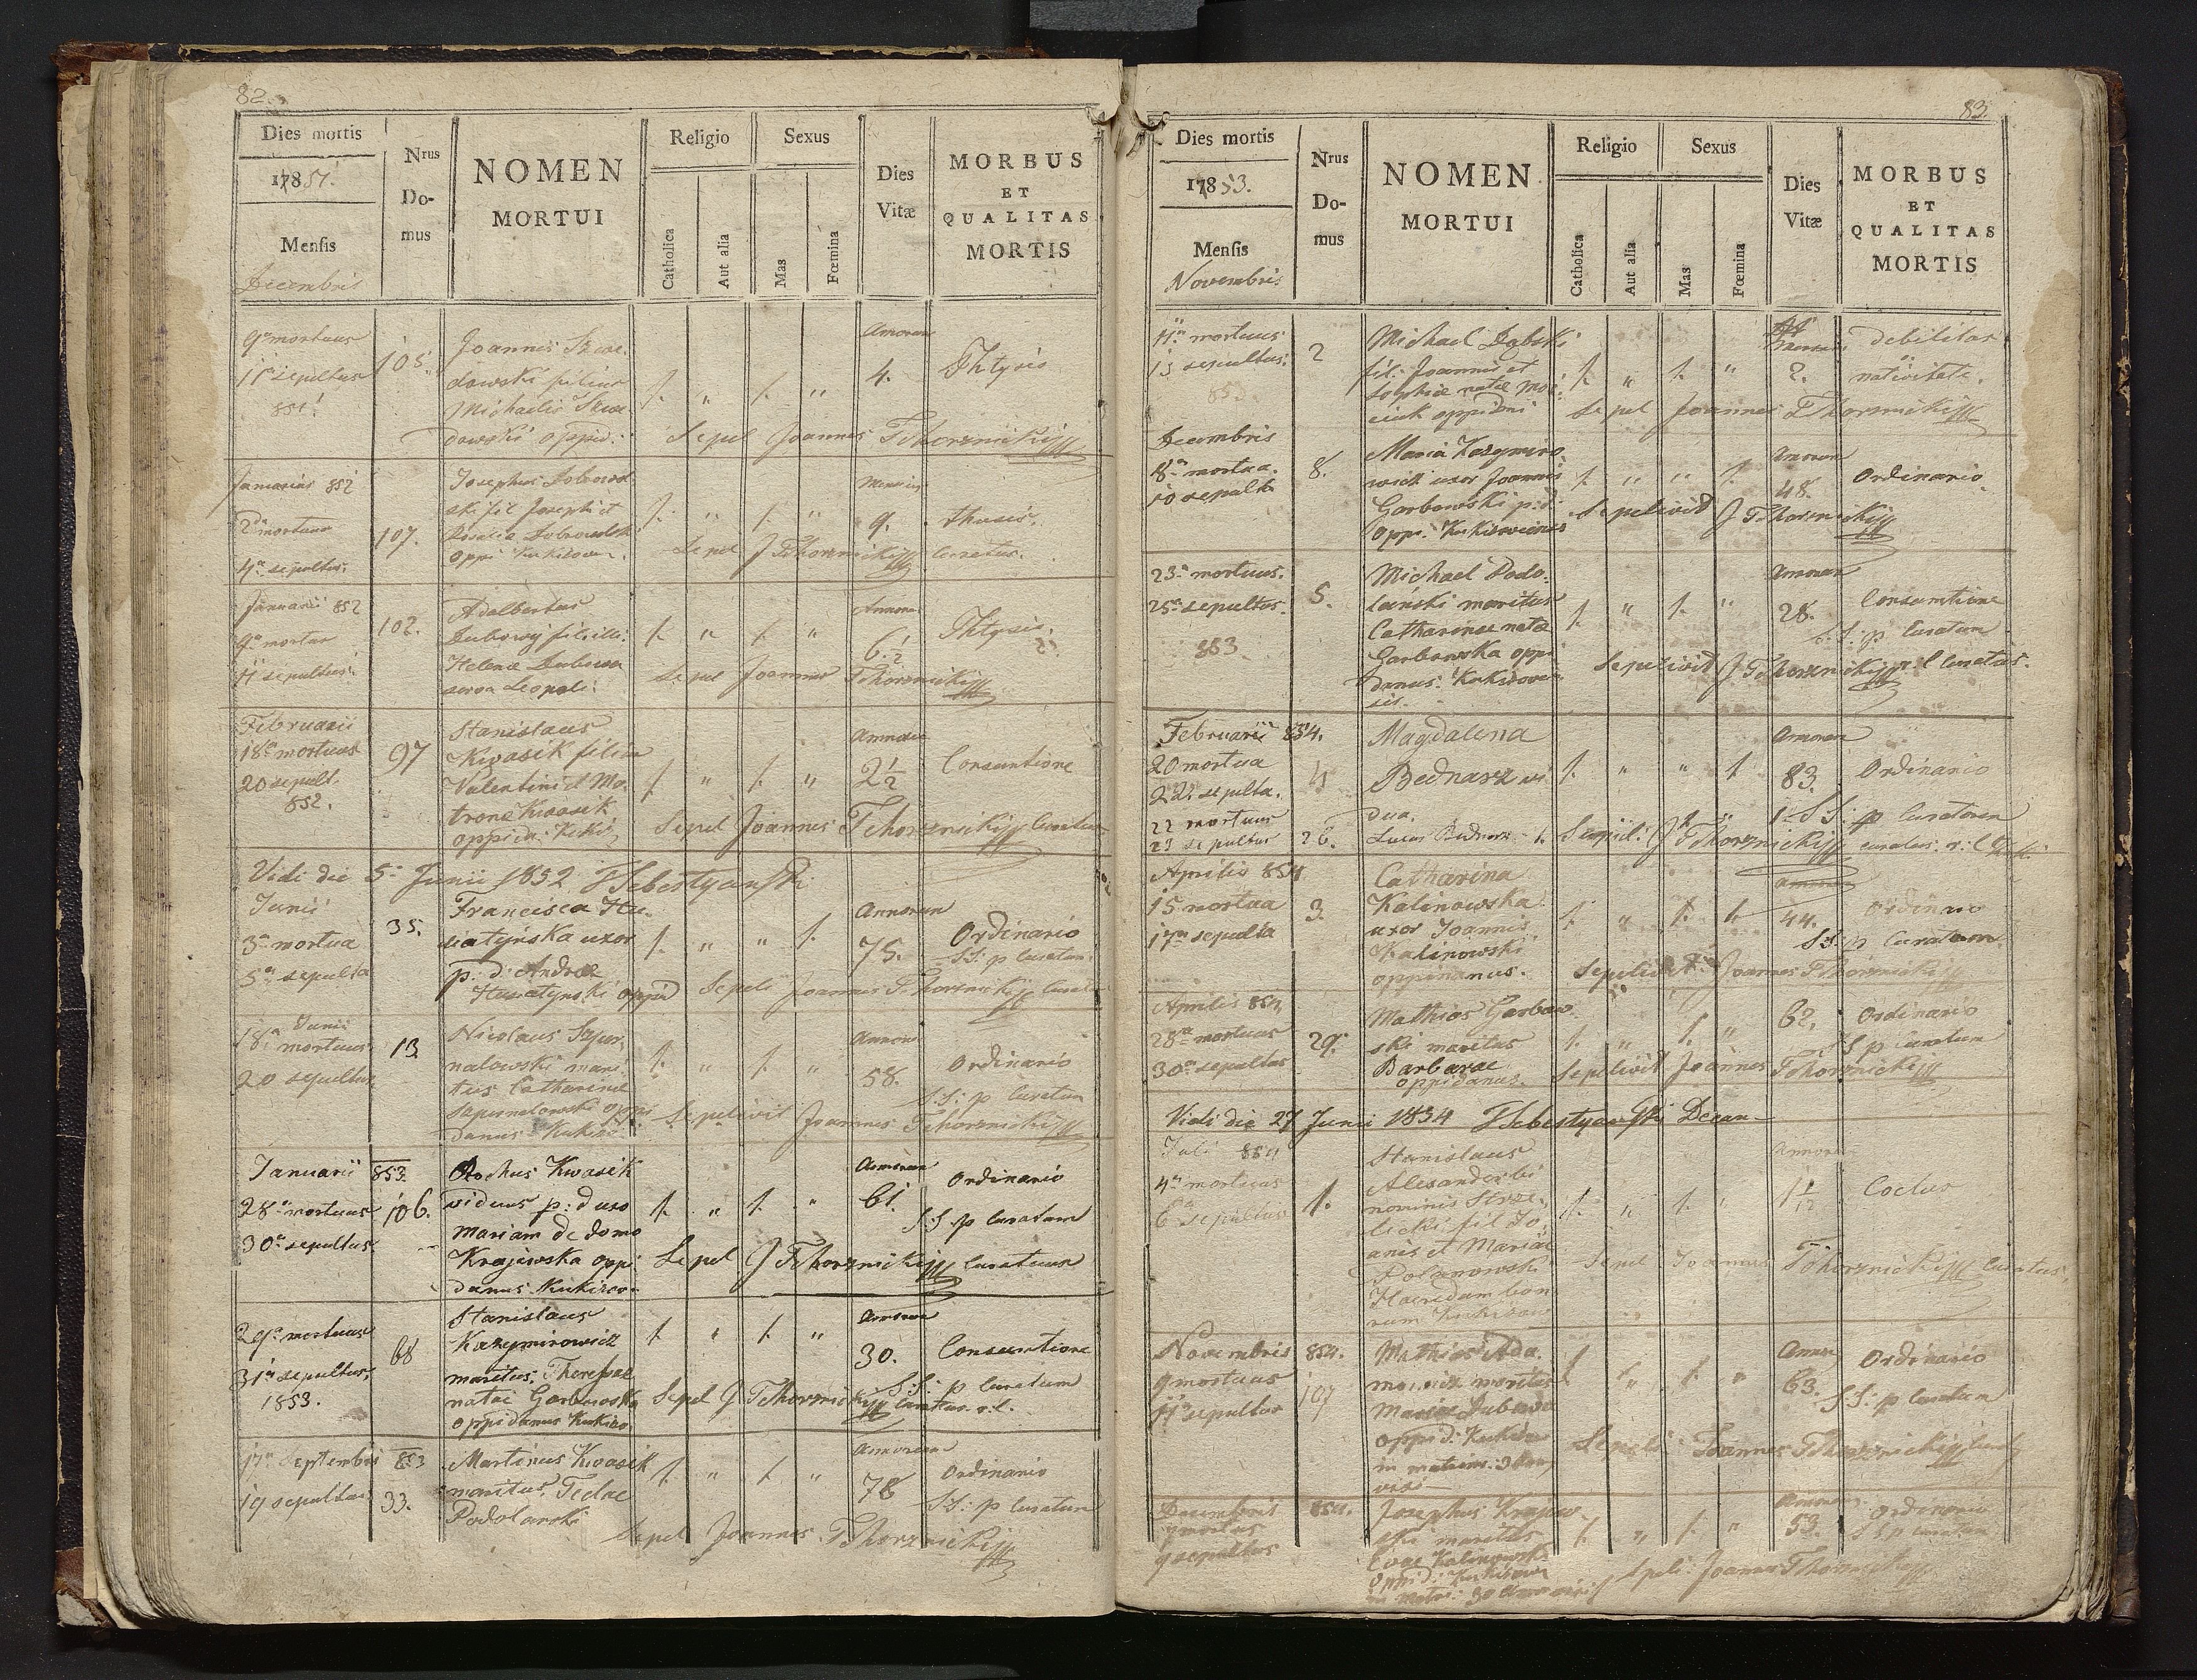 82.
Dies mortis
17851.
Mensis
Decembris
Nrus
Do-
mus
NOMEN
MORTUI
Religio
Catholica
Aut alia
Sexus
Mas
Fœmina
Dies
Vitæ
MORBUS
ET
QUALITAS
MORTIS
9a mortuus
11a sepultus
851.
105.
Joannis
dowski filius
Michaelis
dowski oppid:
1. " 1. "
Annorum
4.
Phtysis
Sepel Joannes Tchorznicki
Januarius 852
2a mortuus
4a sepultus.
107.
Josephus Dobrowol
ski fil Josephi et
Rosalia Dobrowolsk
oppi Kukizow.
1. " 1. "
9.
thusis.
Sepel J Tchorznicki Curatus.
Januarii 852
9a mortus
11a sepultus.
102.
Adalbertus
Dubowy fil: ille:
Helenæ Dubowa
serva Leopoli:
1. " 1. "
Annorum
6 1/2
Phtysis.
Sepel Joannes Tchorznicki
Februarii
18a mortuus
20 sepult.
852.
97
Stanislaus
Kwasik filius
Valentini et Ma.
trone Kwasik
oppida: Kukiz
1. " 1. "
2 1/2
Consumtione
Sepel Joannes Tchorznicki Curatus
Vidi die 5a Junii 1852 F Sebestyanski
Junii
3a mortua
5a sepulta
35.
Francisca Hu-
siatyńska uxor
p: d: Andreæ
Husiatynski oppid
1. " " 1.
Annorum
75.
Ordinario
S.S: p Curatum.
Sepeli Joannes Tchorznicki Curatus
Junii
18a mortuus
20 sepultus
13
Nicolaus Szpur
nalowski mari
tus Catharinæ
Szpurnalowski oppi
danus Kukizo:
1. " 1. "
Annorum
58.
Ordinario
S.S: p Curatum
Sepelivit Joannes Tchorznicki
Januarii 853.
28a mortuus
30a sepultus
106.
Rochus Kwasik
viduus p: d uxo
Mariam de domo
Krajewska oppi
danus Kukizov-
1. " 1. "
Annorum
61.
Ordinario
S.S p Curatum
Sepel J Tchorznicki Curatus
29a mortuus
31a sepultus,
1853.
68
Stanislaus
Kazymirowicz
maritus: Theressæ
natæ Garbowska
oppidanus Kukizo
1. " 1. "
Annorum
30.
Consumtione
S.S: p Curatum
Sepel J Tchorznicki Curatus r.l.
17a Septembris 853
19 sepultus
33.
Martinus Kwasik
maritus, Teclae
Podolanski
1. " 1. "
Annorum
78
Ordinario
S.S: p Curatum
Sepel Joannes Tchorznicki
83.
Dies mortis
17853.
Mensis
Novembris
Nrus
Do-
mus
NOMEN
MORTUI
Religio
Catholica
Aut alia
Sexus
Mas
Fœmina
Dies
Vitæ
MORBUS
ET
QUALITAS
MORTIS
11a mortuus
13 sepultus.
853
2
Michael Dąbski
fil: Joannis et
Sophiæ natæ
oppidani
1. " 1. "
2.
debilitas
a
nativitate.
Sepel Joannes Tchorznicki
Decembris
8a mortua.
10 sepulta
8.
Maria Kazymiro
wicz uxor Joannis
Garbowski p: d.
oppi. Kukizoviensis
1. " " 1.
Annorum
48.
Ordinario
Sepelivit J Tchorznicki
23a mortuus.
25a sepultus.
853.
5.
Michael Podo-
lański maritus
Catharinæ natæ
Garbowska oppi
danus: Kukizovi
sis.
1. " 1. "
Annorum
28.
Consumtione
S.S: p Curatum
Sepelivit J Tchorznicki r.l Curatus.
Februarii 854.
20 mortua
22a sepulta.
4
Magdalena
Bednarz vi
dua,
1. " " 1
Annorum
83.
Ordinario
S S: p Curatorem
22 mortuus
23 sepultus
26.
Lucas Bednarz 1.
Sepeli: J Tchorznicki curatus. r: l
Aprilis 854
15 mortua
17a sepulta
3.
Catharina
Kalinowska
uxor Joannis
Kalinowski
oppidanus.
1. " 1. 1.
44.
Ordinario
S.S: p Curatum.
Sepelivit. Joannes Tchorznicki
Aprilis 854
28a mortuus
30a sepultus
29.
Mathias Garbow
ski maritus
Barbarae
oppidanus.
1. " 1. "
62.
Ordinario
S.S p Curatum
Sepelivit Joannes Tchorznicki
Vidi die 27 Junii 1854 F Sebestyanski Decan-
Juli 854
4a mortuus
6a sepultus
1.
Stanislaus
Alexander bi
nominis Strze-
lecki fil Jo
anis et Mariæ
Polanowski
Haeredum bon
rum Kukizow
1. " 1. "
Annorum
1 1/12
Coctus
Sepel Joannes Tchorznicki Curatus,
Novembris 854.
9 mortuus
11a sepultus
107
Mathias Ada
mowicz maritus
Mariæ Dubowa
oppid: Kukizow
in matrim: 30
1 " 1. "
63.
Ordinario
S S: p Curatum
Sepeli Joannes Tchorznicki
Decembris 854.
7 mortus
9 sepultus
Josephus Krajew
ski maritus
Evae Kalinowski
oppid: Kukizow
in matri: 30
1. " 1. "
53.
Ordinario
S S p Curatum
Sepeli Joannes Tchorznicki